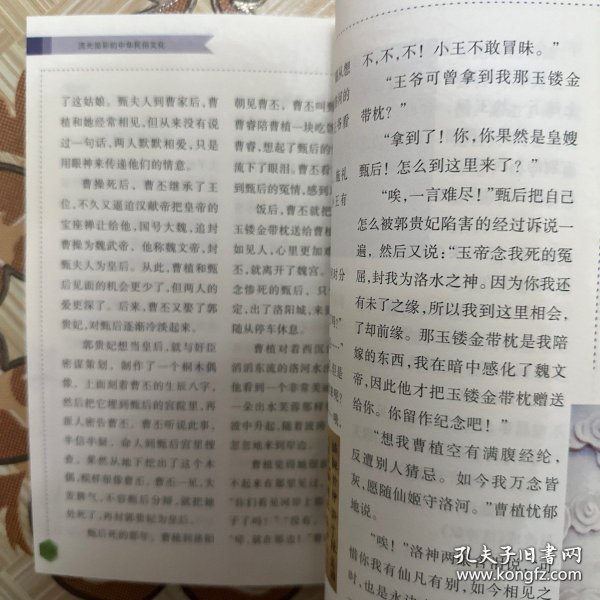 流光溢彩的中华民俗文化
了这姑娘。甄夫人到曹家后,曹
植和她经常相见,但从来没有说
过一句话,两人默默相爱,只是
用眼神来传递他们的情意。
曹操死后,曹丕继承了王
位,不久又逼迫汉献帝把皇帝的
宝座禅让给他,国号大魏,追封
曹操为魏武帝,他称魏文帝,封
甄夫人为皇后。从此,曹植和甄
后见面的机会更少了,但两人的
爱更深了。后来,曹丕又娶了郭
贵妃,对甄后逐渐冷淡起来。
郭贵妃想当皇后,就与奸臣
密谋策划,制作了一个桐木偶
像,上面刻着曹丕的生辰八字,
然后把它埋到甄后的宫院里,再
派人密告曹丕。曹丕听说此事,
半信半疑,命人到甄后宫里搜
查,果然从地下挖出了这个木
偶,
发脾气,不容甄后分辩,就把她
处死了,再封郭贵妃为皇后。
甄后死的那年,曹植到洛阳
朝见曹丕,曹丕叫甄
曹睿陪曹植一块吃饭
曹睿,想起了甄后的
流下了眼泪。曹丕看
到甄后的冤情,感到
饭后,曹丕就把
玉镂金带枕送给曹植
如见人,心里更加难
丕,就离开了魏宫。
念惨死的甄后,只
定,出了洛阳城,来到
随从停车休息。
曹植对着西沉
滔滔东流的洛河水
他看到一个非常美
一朵出水芙蓉那样
波中升起,随着
忽忽地来到岸边。
曹植觉得她很
水起来在那里见过,
“你们看见河岸上
子了吗?”“没有,
不,不,不!小王不敢冒昧。”
“王爷可曾拿到我那玉镂金
带枕?”
“拿到了!你,你果然是皇嫂
甄后!怎么到这里来了?”
“唉,一言难尽!”甄后把自己
怎么被郭贵妃陷害的经过诉说一
遍,然后又说:“玉帝念我死的冤
屈,封我为洛水之神。因为你我还
有未了之缘,所以我到这里相会,
了却前缘。那玉镂金带枕是我陪
嫁的东西,我在暗中感化了魏文
帝,因此他才把玉镂金带枕赠送
给你。你留作纪念吧!”
“想我曹植空有满腹经纶,
反遭别人猜忌。如今我万念皆
灰,愿随仙姬守洛河。”曹植忧郁
地说。
“唉!”洛神两
惜你我有仙凡有别,如今相见之
孔夫子旧书网
kongfz.com